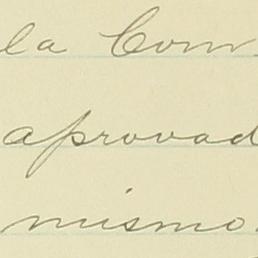 la Com
aprovad
mismo.